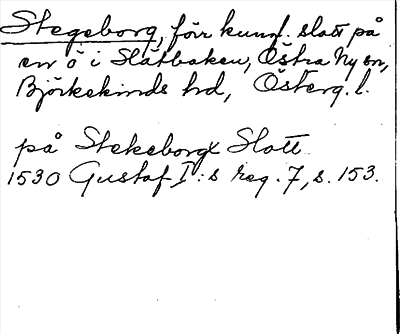 Stegeborg, förr kungl. slott på
en ö i Slätbaken, Östra Ny sn,
Björkekinds hd, Österg. l.
på Stekeborgx Slott
1530 Gustaf I:s reg. 7, s. 153.